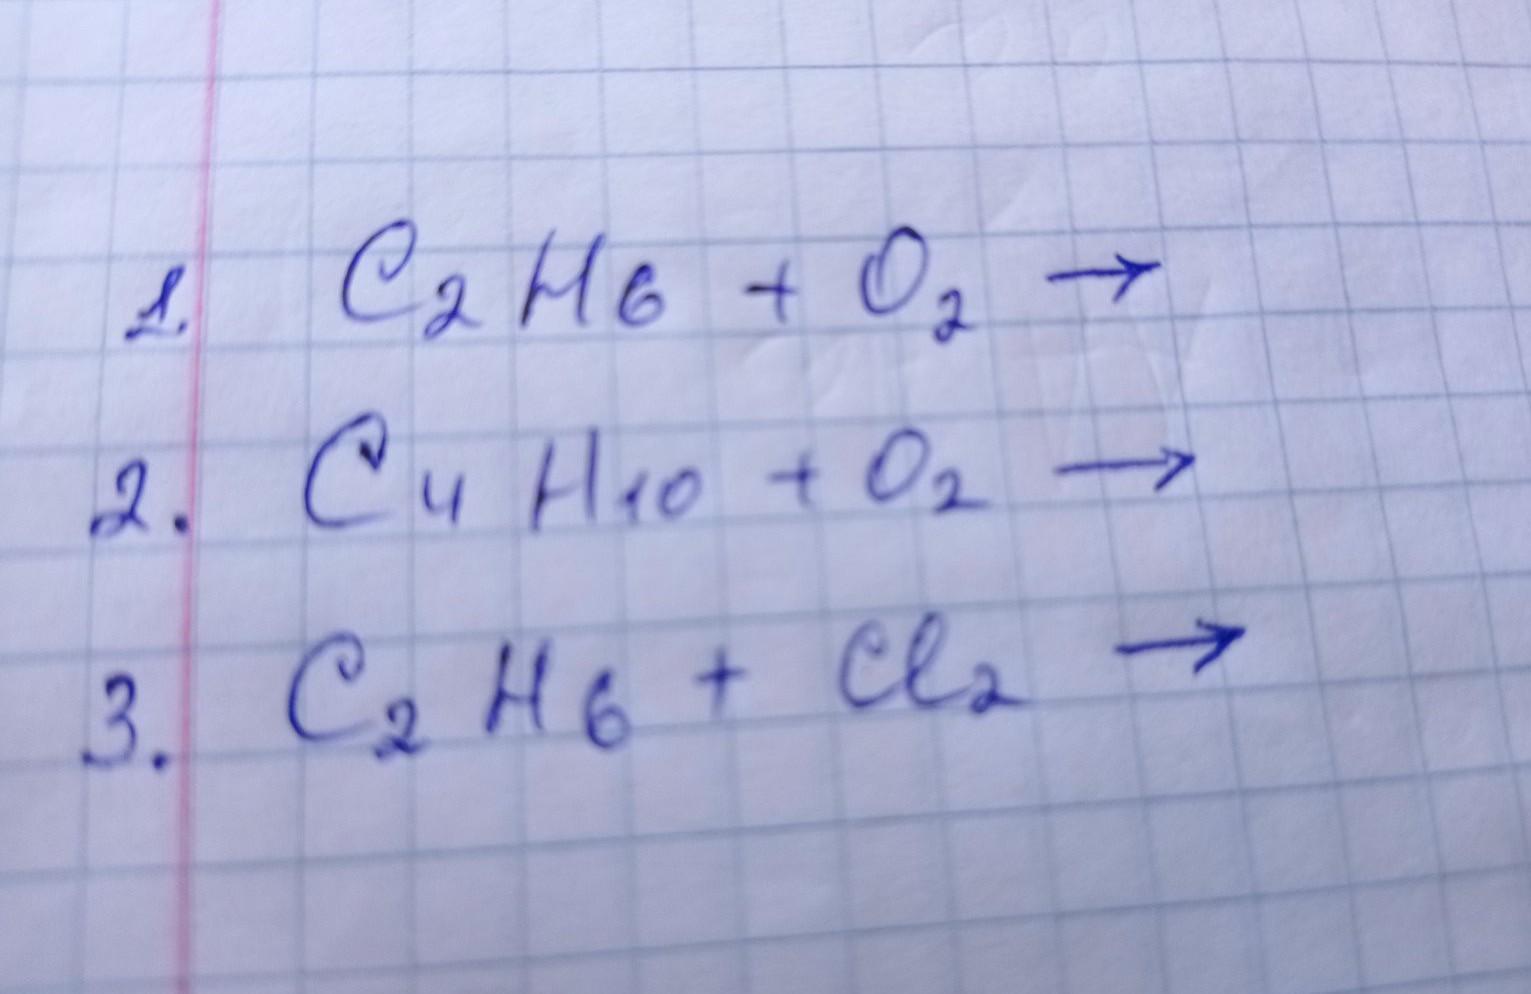 1. C₂H₆ + O₂ →
2. C₄H₁₀ + O₂ →
3. C₂H₆ + Cl₂ →